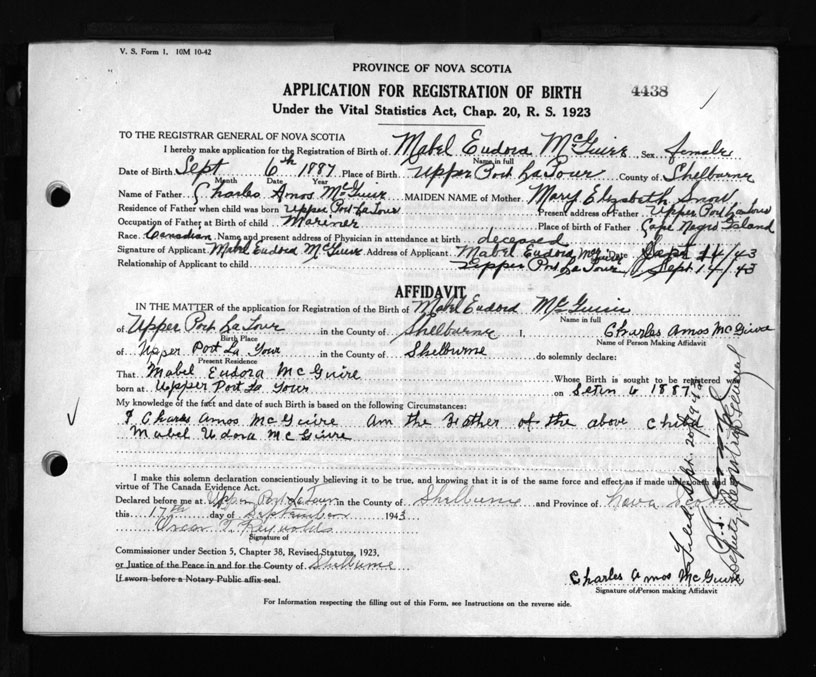 V. S. Form 1. 10M 10-42
PROVINCE OF NOVA SCOTIA
APPLICATION FOR REGISTRATION OF BIRTH
4438
Under the Vital Statistics Act, Chap. 20, R. S. 1923
TO THE REGISTRAR GENERAL OF NOVA SCOTIA
I hereby make application for the Registration of Birth of Mabel Eudora McGuire Sex female
Name in full
Date of Birth Sept 6th 1887 Place of Birth Upper Port LaTour County of Shelburne
Month Date Year
Name of Father Charles Amos McGuire MAIDEN NAME of Mother Mary Elizabeth Snow
Residence of Father when child was born Upper Port LaTour Present address of Father Upper Port LaTour
Occupation of Father at Birth of child Mariner Place of birth of Father Cape Negro Island
Race Canadian Name and present address of Physician in attendance at birth deceased
Signature of Applicant Mabel Eudora McGuire Address of Applicant Mabel Eudora McGuire Date Sept 14/43
Relationship of Applicant to child Upper Port LaTour Sept 14/43
AFFIDAVIT
IN THE MATTER of the application for Registration of the Birth of Mabel Eudora McGuire
Name in full
of Upper Port LaTour in the County of Shelburne I, Charles Amos McGuire
Birth Place Name of Person Making Affidavit
of Upper Port La Tour in the County of Shelburne do solemnly declare:
Present Residence
That Mabel Eudora McGuire Whose Birth is sought to be registered was
born at Upper Port La Tour on 6 1887
My knowledge of the fact and date of such Birth is based on the following Circumstances:
I Charles Amos McGuire am the Father of the above child
Mabel Udora McGuire
I make this solemn declaration conscientiously believing it to be true, and knowing that it is of the same force and effect as if made under oath and by
virtue of The Canada Evidence Act.
Declared before me at Upper Port LaTour in the County of Shelburne and Province of Nova Scotia
this 17th day of September 1943
Signature of
Commissioner under Section 5, Chapter 38, Revised Statutes, 1923,
or Justice of the Peace in and for the County of Shelburne
If sworn before a Notary Public affix seal.
Charles Amos McGuire
Signature of Person making Affidavit
For Information respecting the filling out of this Form, see Instructions on the reverse side.
Filed Sept. 20, 1943
Deputy Registrar General